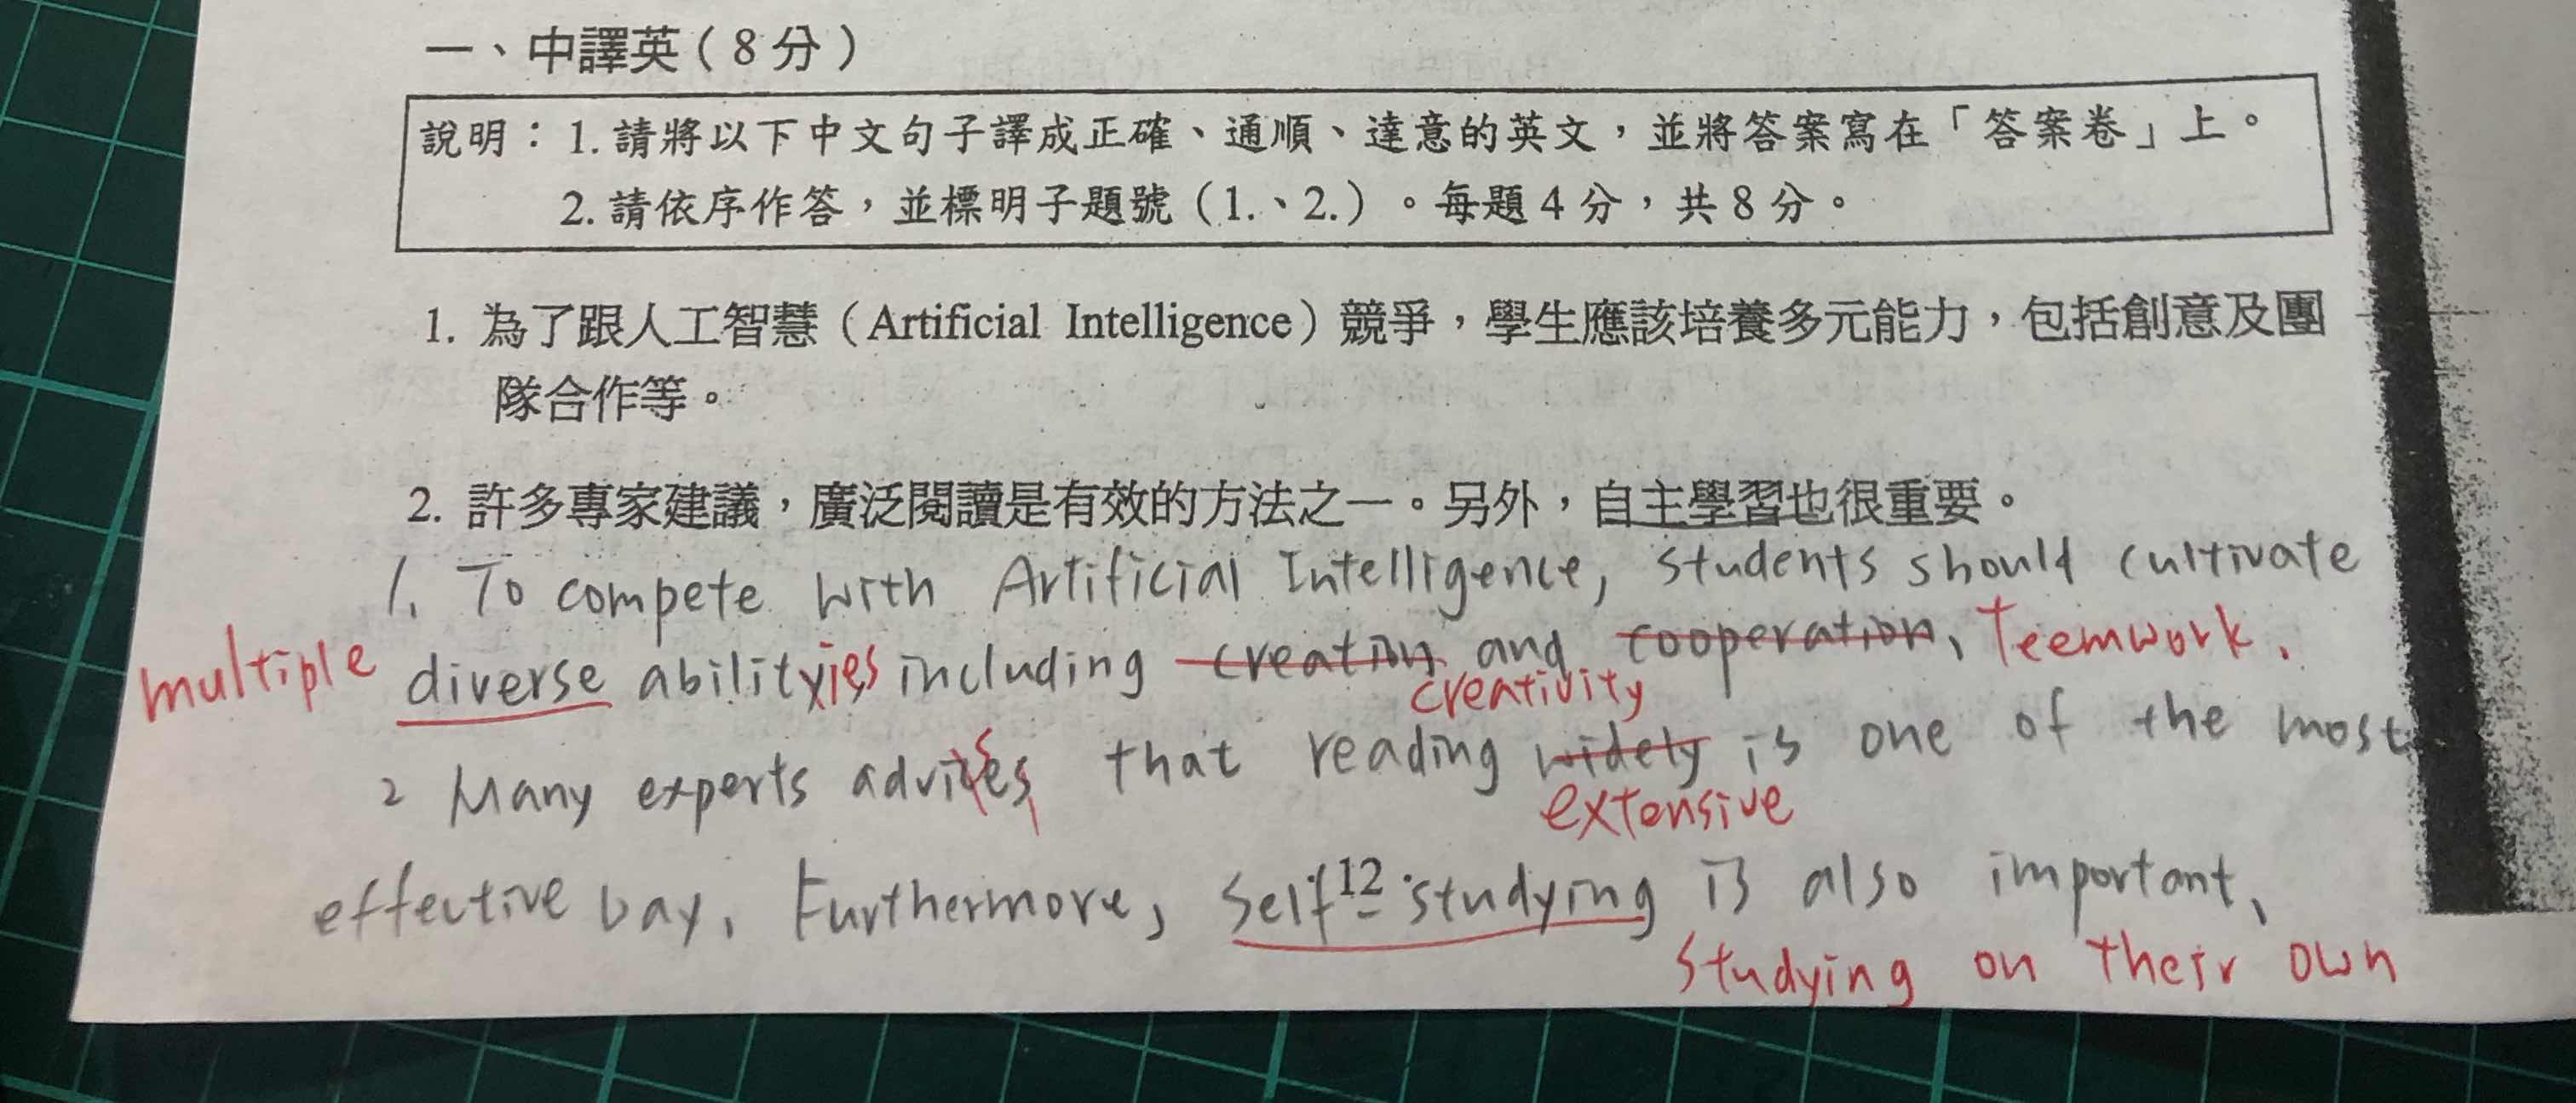 一、中譯英（8分）
說明：1. 請將以下中文句子譯成正確、通順、達意的英文，並將答案寫在「答案卷」上。
2. 請依序作答，並標明子題號（1.、2.）。每題4分，共8分。
1. 為了跟人工智慧（Artificial Intelligence）競爭，學生應該培養多元能力，包括創意及團
隊合作等。
2. 許多專家建議，廣泛閱讀是有效的方法之一。另外，自主學習也很重要。
1. To compete with Artificial Intelligence, students should cultivate
multiple diverse abilityies including creation and cooperation, Teemwork.
creativity
2 Many experts advices that reading widely is one of the most
s
extensive
effective way. Furthermore, self-studying is also important.
12
studying on their own